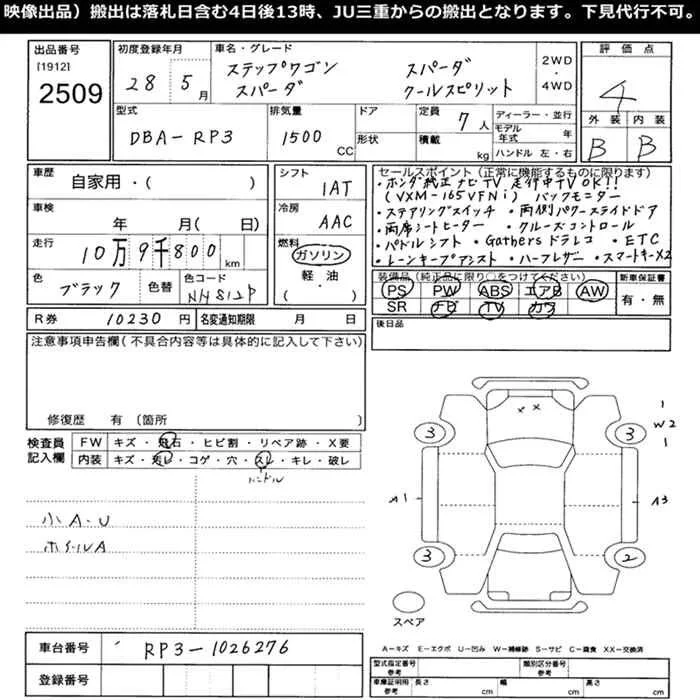 映像出品）搬出は落札日含む4日後13時、JU三重からの搬出となります。下見代行不可。
出品番号
[1912]
2509
初度登録年月
28 5月
車名・グレード
ステップワゴン スパーダ
スパーダ クールスピリット
2WD
・
4WD
評価点
4
外装 内装
B B
型式
DBA-RP3
排気量
1500 CC
ドア
形状
定員
7人
積載
kg
ディーラー・並行
モデル年式 年
ハンドル 左・右
車歴
自家用・( )
車検
年 月( 日)
走行
10万9千800 km
色
ブラック
色替
色コード
シフト
1AT
冷房
AAC
燃料
ガソリン
軽・油
( )
セールスポイント（正常に機能するものに限ります）
・ホンダ純正ナビTV 走行中TV OK!!
(VXM-165VFNi) バックモニター
・ステアリングスイッチ ・両側パワースライドドア
・両席シートヒーター ・クルーズコントロール
・パドルシフト ・Gathersドラレコ ・ETC
・レーンキープアシスト ・ハーフレザー ・スマートキーX2
装備品（純正品に限り○をつけてください）
PS PW ABS エアB AW
SR ナビ TV カワ
新車保証書
有・無
R券 10230円
名変通知期限 月 日
後日品
注意事項申告欄（不具合内容等は具体的に記入して下さい）
修復歴 有（箇所 ）
検査員記入欄
FW キズ・飛石・ヒビ割・リペア跡・X要
内装 キズ・汚レ・コゲ・穴・スレ・キレ・破レ
ハンドル
小A-U
ホイールA
× ×
3 3
1
W2
1
A1 A3
3 2
スペア
車台番号 RP3-1026276
登録番号
A－キズ E－エクボ U－凹み W－補修跡 S－サビ C－腐食 XX－交換済
型式指定番号 参考
類別区分番号 参考
車庫証明用 参考
長さ cm 幅 cm 高さ cm